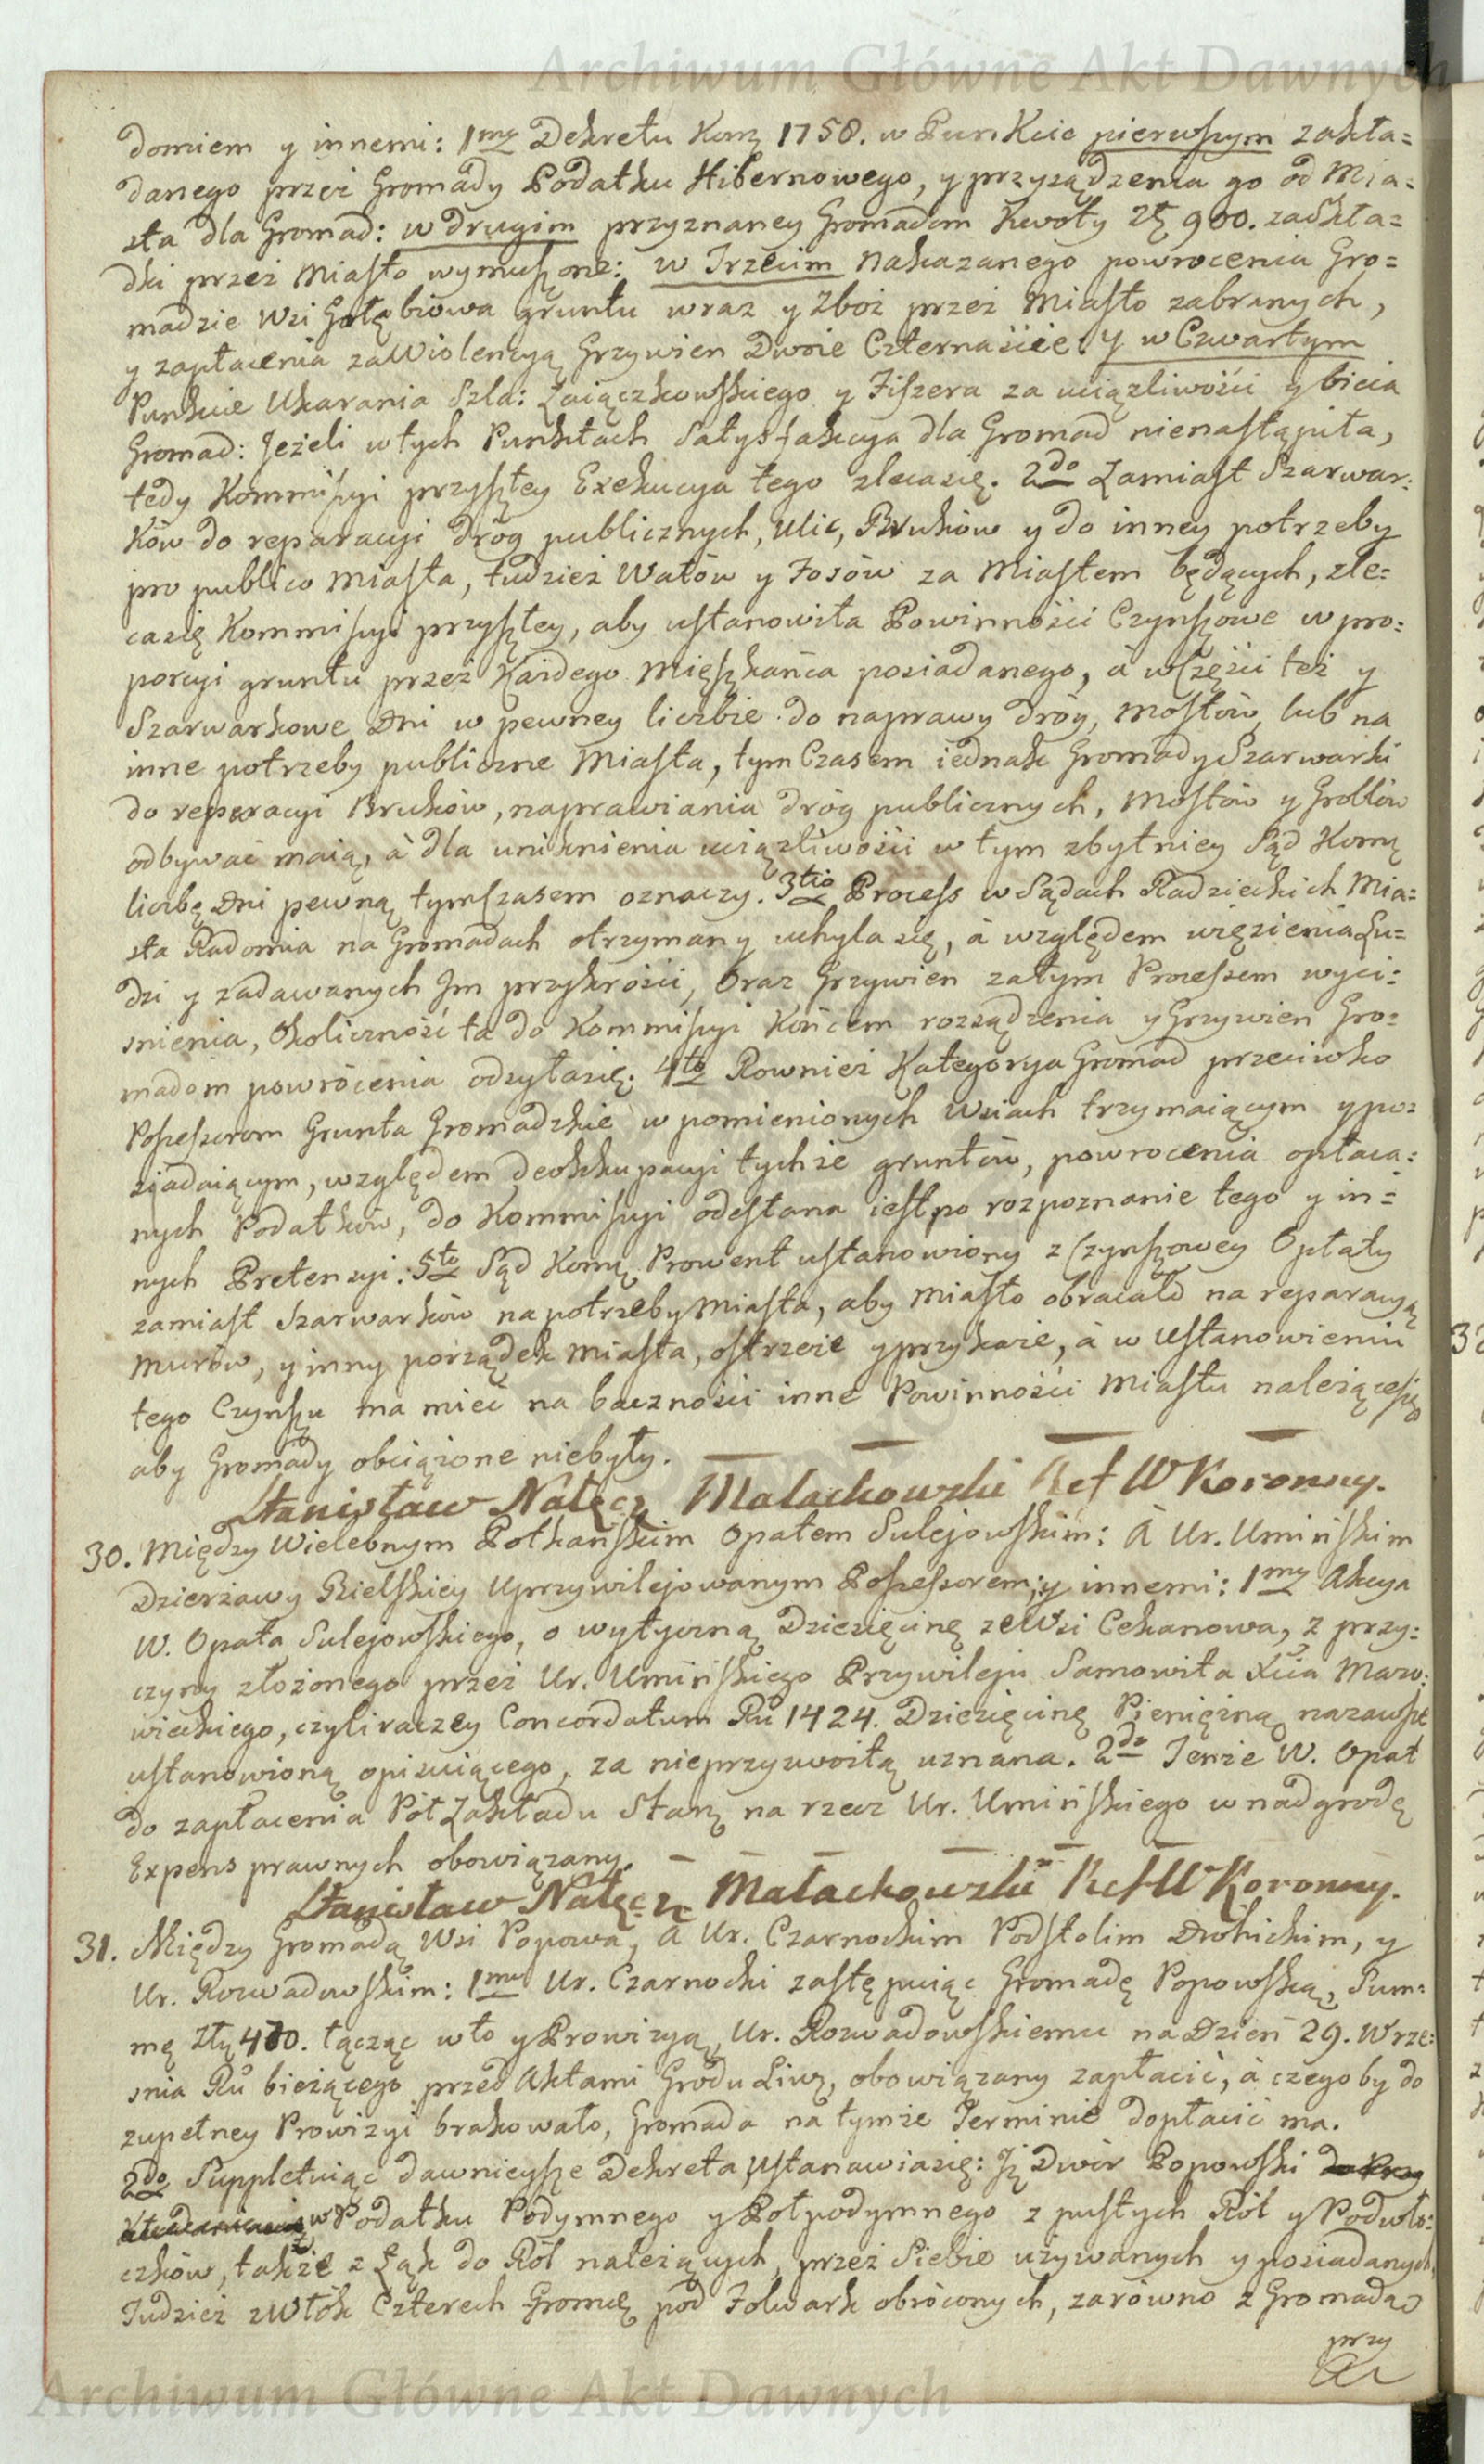 Archiwum Główne Akt Dawnych
domiem y innemi: 1mo Dekretu Komꝫ 1758. w Punkcie pierwszym zakła=
danego przez Gromady Podatku Hibernowego, y przysądzenia go od Mia=
sta dla Gromad: w drugim przyznaney Gromadom Kwoty Zł 900. za skła=
dki przez Miasto wymuszone: w Trzecim nakazanego powrocenia Gro=
madzie Wsi Gołębiowa gruntu wraz y Zboż przez Miasto zabranych,
y zapłacenia za Wiolencyą Grzywien Dwoie Czternaście. Y w Czwartym
Punkcie Ukarania Szla: Zaiączkowskiego y Fiszera za uciązliwości y bicia
Gromad: Jeżeli w tych Punktach Satysfakcya dla Gromad nienastąpiła,
tedy Kommissyi przyszłey Exekucya tego zleca się. 2do Zamiast Szarwar=
ków do reparacyi dróg publicznych, Ulic, Bruków y do inney potrzeby
pro publico Miasta, tudzież Wałów y Fosów za Miastem będących, zle=
ca się Kommissyi przyszłey, aby ustanowiła Powinności Czynszowe w pro=
porcyi gruntu przez Każdego Mięszkańca posiadanego, à w Części też y
Szarwarkowe Dni w pewney liczbie do naprawy dróg, Mostów, lub na
inne potrzeby publiczne Miasta, tym Czasem iednak Gromady Szarwarki
do reperacyi Bruków, naprawiania dróg publicznych, Mostów y Grobłów
odbywać maią, à dla uniknienia uciązliwości w tym zbytniey Sąd Komꝫ
liczbę Dni pewną tym Czasem oznaczy. 3tio Process w Sądach Radzieckich Mia=
sta Radomia na Gromadach otrzymany uchyla się, à względem więzienia Lu=
dzi y zadawanych Im przykrości, Oraz Grzywien za tym Processem wyci=
snienia, Okoliczność ta do Kommissyi Końcem rozsądzenia y Grzywien Gro=
madom powrócenia odsyła się. 4to Rownież Kategorya Gromad przeciwko
Possessorom Grunta Gromadzkie w pomienionych Wsiach trzymaiącym y po=
siadaiącym, względem deokkupacyi tychże gruntów, powrocenia opłaca=
nych Podatków, do Kommissyi odesłana iest po rozpoznanie tego y in=
nych Pretensyi. 5to Sąd Komꝫ Prowent ustanowiony z Czynszowey Opłaty
zamiast Szarwarków na potrzeby Miasta, aby Miasto obracało na reparacyą
Murów, y inny porządek Miasta, ostrzeże y przykaże, à w Ustanowieniu
tego Czynszu ma mieć na baczności inne Powinności Miastu należące się
aby Gromady obciążone niebyły.
Stanisław Nałęcz Małachowski Ref W Koronny.
30. Między Wielebnym Połkańskim Opatem Sulejowskim: À Ur. Umińskim
Dzierżawy Bielskiey Uprzywilejowanym Possessorem; y innemi: 1mo Akcya
W. Opata Sulejowskiego, o wytyczną Dziesięcinę ze Wsi Cekanowa, z przy=
czyny złożonego przez Ur. Umińskiego Przywileju Samowita Xcia Mazo=
wieckiego, czyli raczey Concordatum Ru 1424. Dziesięcinę Pieniężną nazawsze
ustanowioną opisuiącego, za nieprzyzwoitą uznana. 2do Tenże W. Opat
do zapłacenia Pół Zakładu Stanꝫ na rzecz Ur. Umińskiego w nadgrodę
Expens prawnych obowiązany.
Stanisław Nałęcz Małachowski Ref W Koronny.
31. Między Gromadą Wsi Popowa, À Ur. Czarnockim Podstolim Drohickim, y
Ur. Rozwadowskim: 1mo Ur. Czarnocki zastępuiąc Gromadę Popowską, Sum=
mę Złł 470. łącząc w to y Prowizyą, Ur. Rozwadowskiemu na Dzień 29. Wrze=
śnia Ru bieżącego przed Aktami Grodu Liwꝫ, obowiązany zapłacić, à czego by do
zupełney Prowizyi brakowało, Gromada na tymże Terminie dopłacić ma.
2do Suppletuiąc dawnieysze Dekreta Ustanawia się: Iż Dwór Popowski
w Podatku Podymnego y Połpodymnego z pustych Ról y Podwło=
czków, także z Łąk do Ról należących, przez Siebie używanych y posiadanych,
Tudzież z Włók Czterech Gromꝫ pod Folwark obróconych, zarówno z Gromadą
przy
Archiwum Główne Akt Dawnych